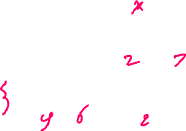 x
2 7
} y 6 2